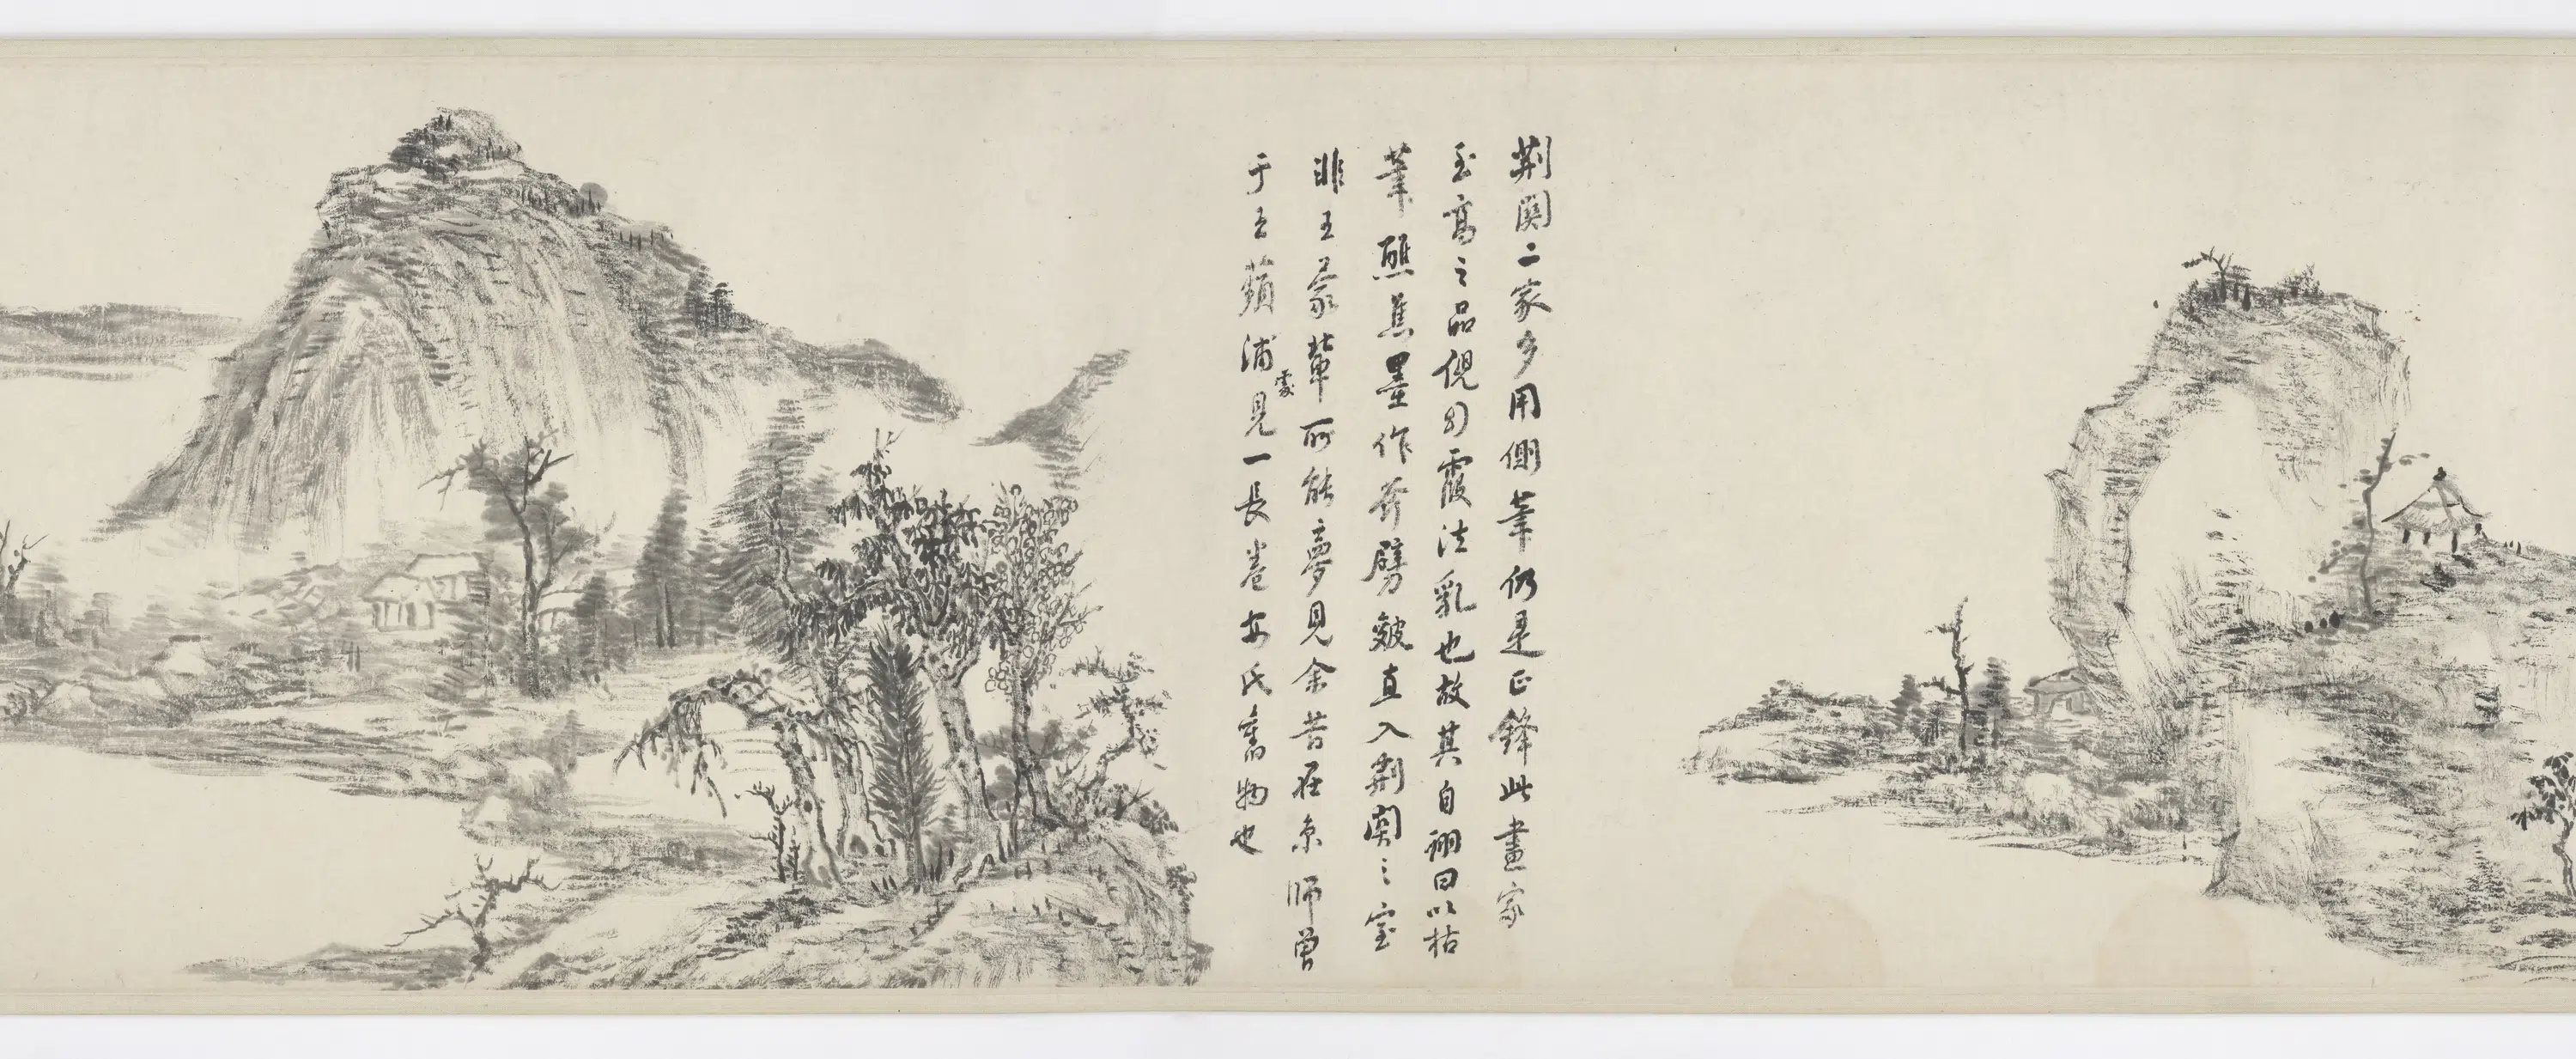 荆関二家多用側筆仍是正鋒此畫家
至高之品倪幻霞法乳也故其自詡曰以枯
筆醮焦墨作斧劈皴直入荆關之室
非王蒙輩所能夢見余昔在京師曾
于蘋浦處見一長卷安氏舊物也